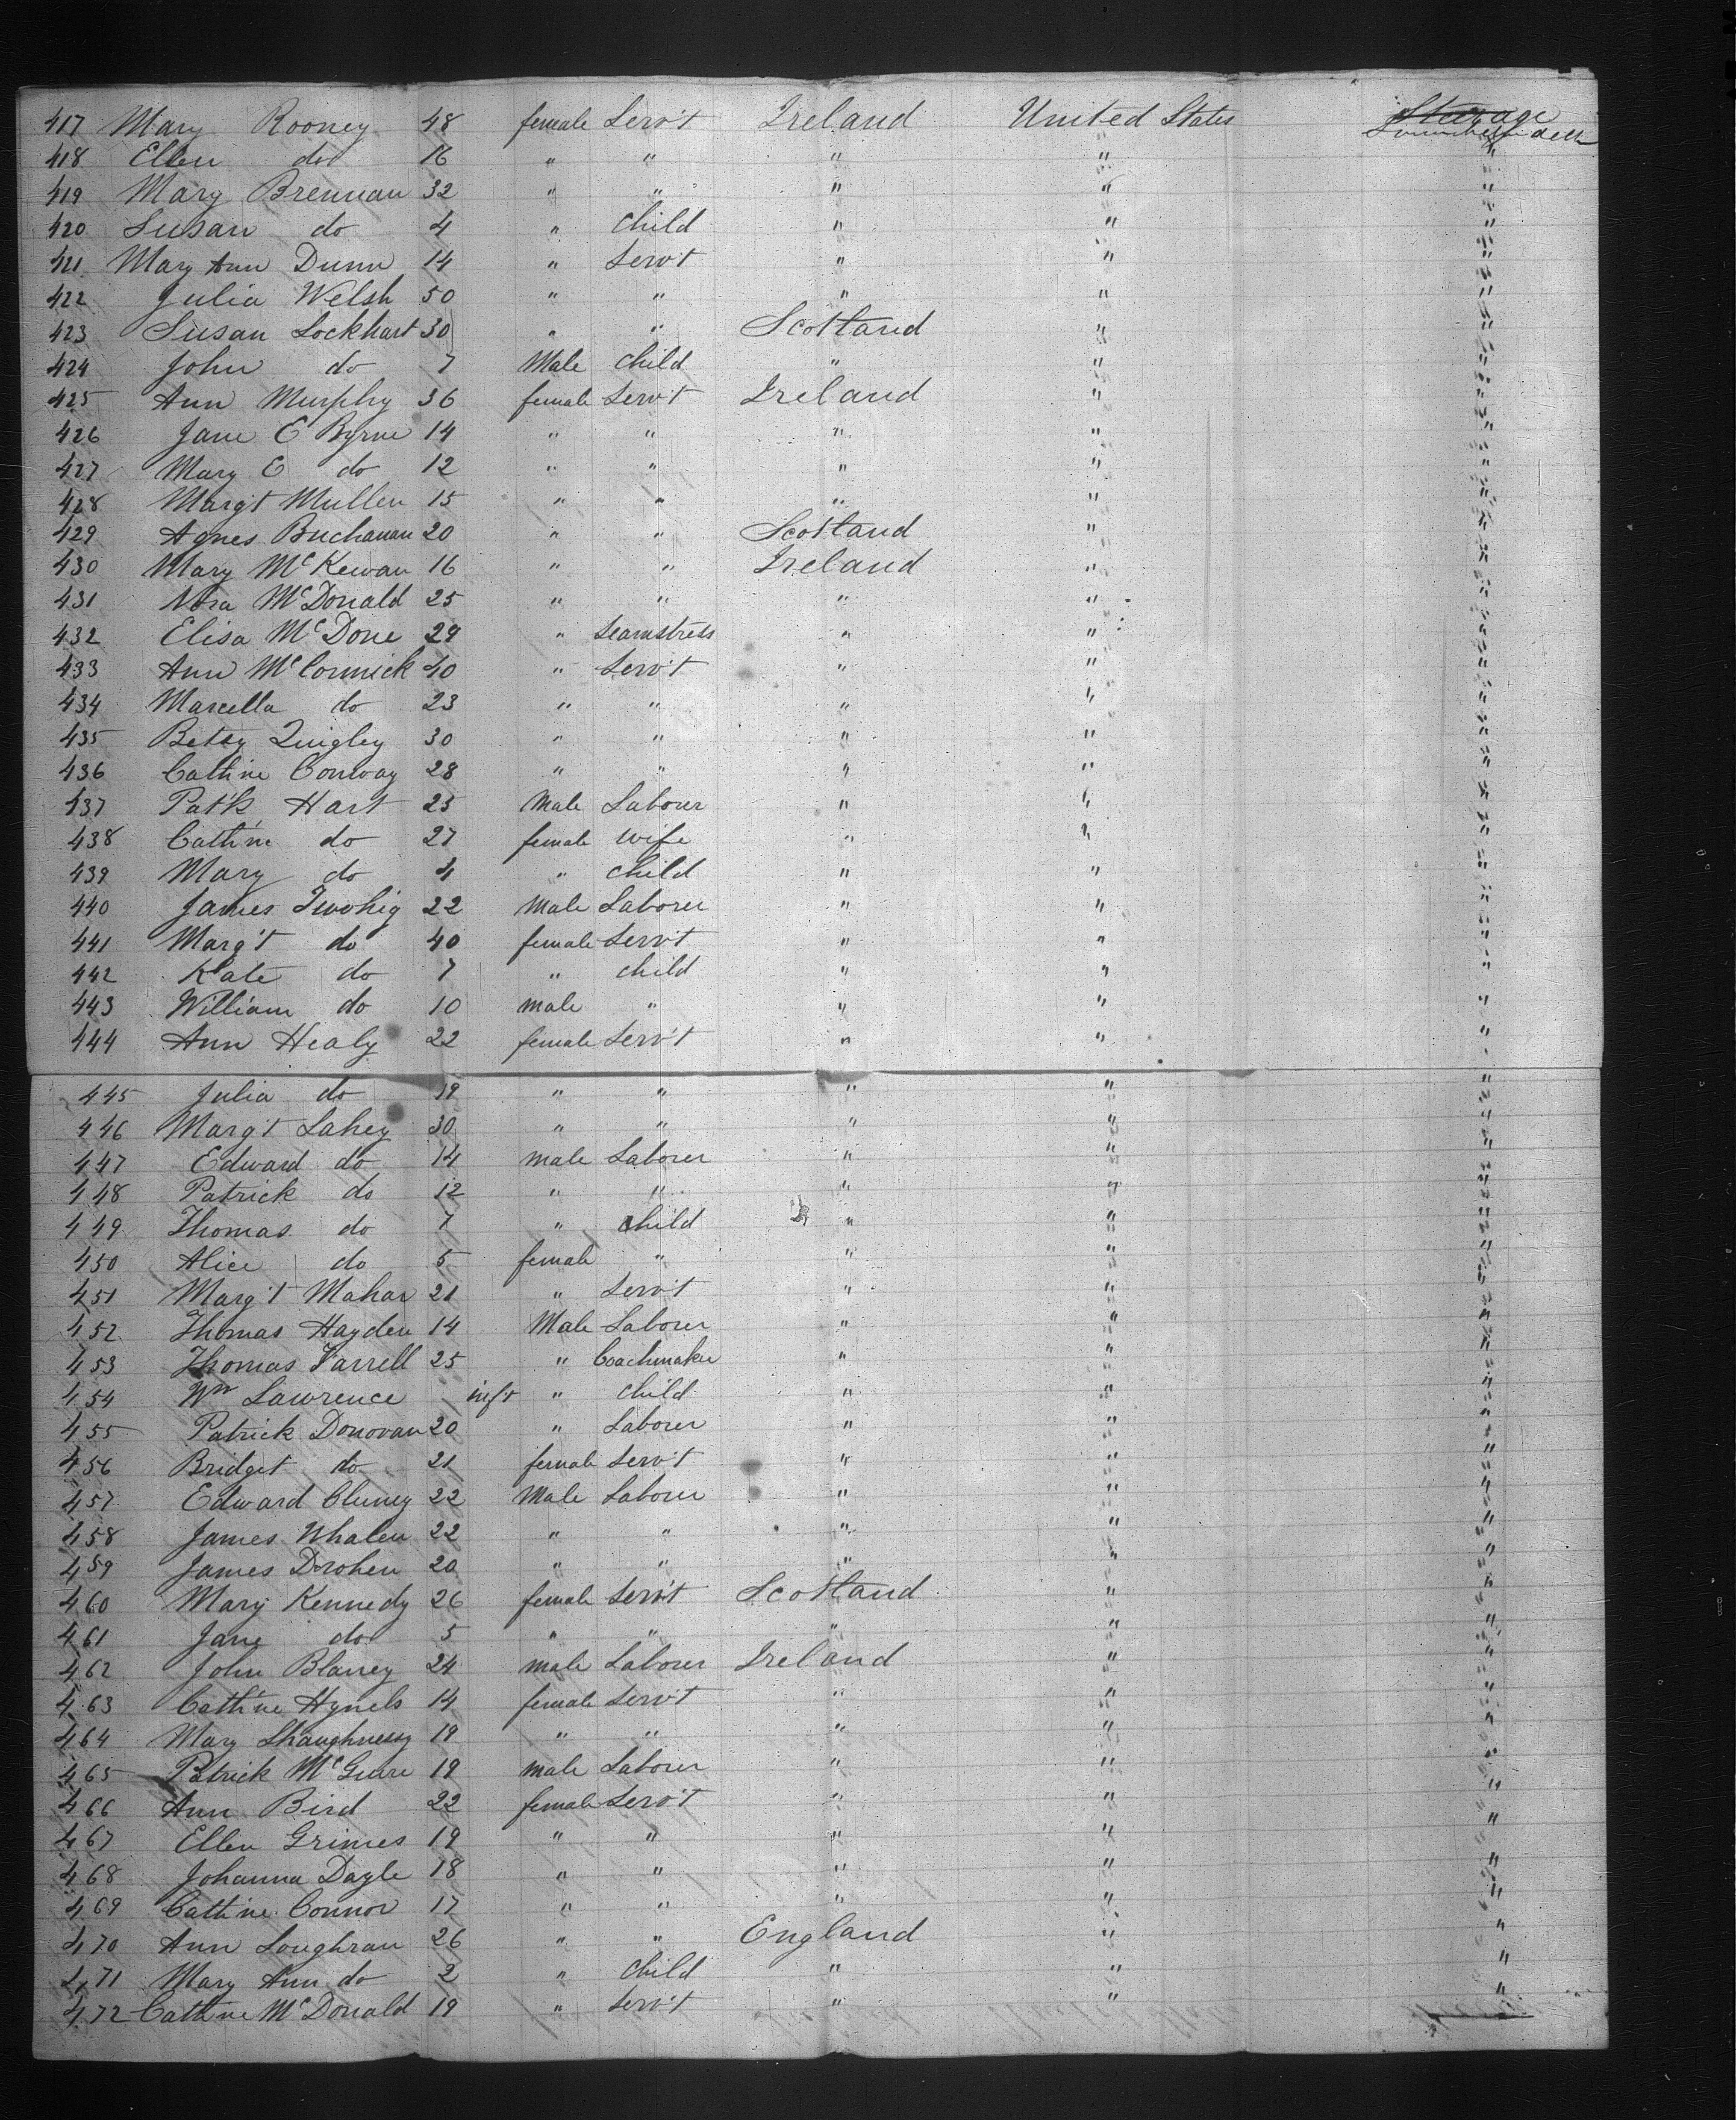 417 Mary Rooney 48 female Serv't Ireland United States Steerage
deck
418 Ellen do 16 " " " " "
419 Mary Brennan 32 " " " " "
420 Susan do 4 " child " " "
421 Mary Ann Dunn 14 " Serv't " " "
422 Julia Welsh 50 " " " " "
423 Susan Lockhart 30 " " Scotland " "
424 John do 7 Male child " " "
425 Ann Murphy 36 female Serv't Ireland " "
426 Jane E Byrne 14 " " " " "
427 Mary E do 12 " " " " "
428 Marg't Mullen 15 " " " " "
429 Agnes Buchanan 20 " " Scotland " "
430 Mary McKewan 16 " " Ireland " "
431 Nora McDonald 25 " " " " "
432 Elisa McDone 29 " Seamstress " " "
433 Ann McCormick 40 " Serv't " " "
434 Marcella do 23 " " " " "
435 Betsy Quigley 30 " " " " "
436 Cath'ine Conway 28 " " " " "
437 Pat'k Hart 25 Male Labour " " "
438 Cath'ine do 27 female wife " " "
439 Mary do 4 " child " " "
440 James Twohig 22 Male Laborer " " "
441 Marg't do 40 female Serv't " " "
442 Kate do 7 " child " " "
443 William do 10 male " " " "
444 Ann Healy 22 female Serv't " " "
445 Julia do 19 " " " " "
446 Marg't Lahey 30 " " " " "
447 Edward do 14 male Laborer " " "
448 Patrick do 12 " " " " "
449 Thomas do 7 " child " " "
450 Alice do 5 female " " " "
451 Marg't Mahar 21 " Serv't " " "
452 Thomas Hayden 14 Male Laborer " " "
453 Thomas Farrell 25 " Coachmaker " " "
454 Wm Lawrence inf't " child " " "
455 Patrick Donovan 20 " Laborer " " "
456 Bridget do 21 female Serv't " " "
457 Edward Cluney 22 Male Laborer " " "
458 James Whalen 22 " " " " "
459 James Drohen 20 " " " " "
460 Mary Kennedy 26 female Serv't Scotland " "
461 Jane do 5 " " " " "
462 John Blaney 24 male Laborer Ireland " "
463 Cath'ine Hynels 14 female Serv't " " "
464 Mary Shaughnessy 19 " " " " "
465 Patrick McGuire 19 male Laborer " " "
466 Ann Bird 22 female Serv't " " "
467 Ellen Grimes 19 " " " " "
468 Johanna Dayle 18 " " " " "
469 Cath'ine Connor 17 " " " " "
470 Ann Loughran 26 " " England " "
471 Mary Ann do 2 " child " " "
472 Cath'ine McDonald 19 " Serv't " " "